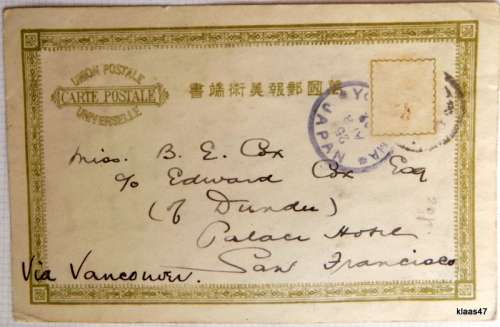 UNION POSTALE
CARTE POSTALE
UNIVERSELLE
萬國郵報美術端書
YO MA
JAPAN
Miss. B. E. Cox
c/o Edward Cox Esq
(of Dundee)
Palace Hotel
San Francisco
Via Vancouver.
klaas47